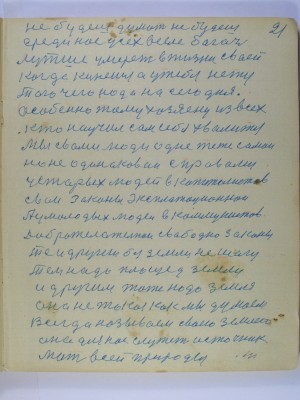 21
не будеш думат не будеш
среди нас всех всела багач
лутше умереть в жизни своей
когда кипения у тебя нету
того чего нада на сегодня.
особенно тому хозяену из всех
кто научил сам себя хвалиту
мы свами люди одне теже самаи
но не одинаковаи справами
четарых людей в капиталистов
свои законы эксплотационнои
А у молодых людей в коммунистов
доброжелательнои свободно законы
те и други без земли не шагу
тем надо площед земли
и другим тоже надо земля
она не то как как мы думаем
всегда называем свою землею
она для нас служит источник
мат всей природы